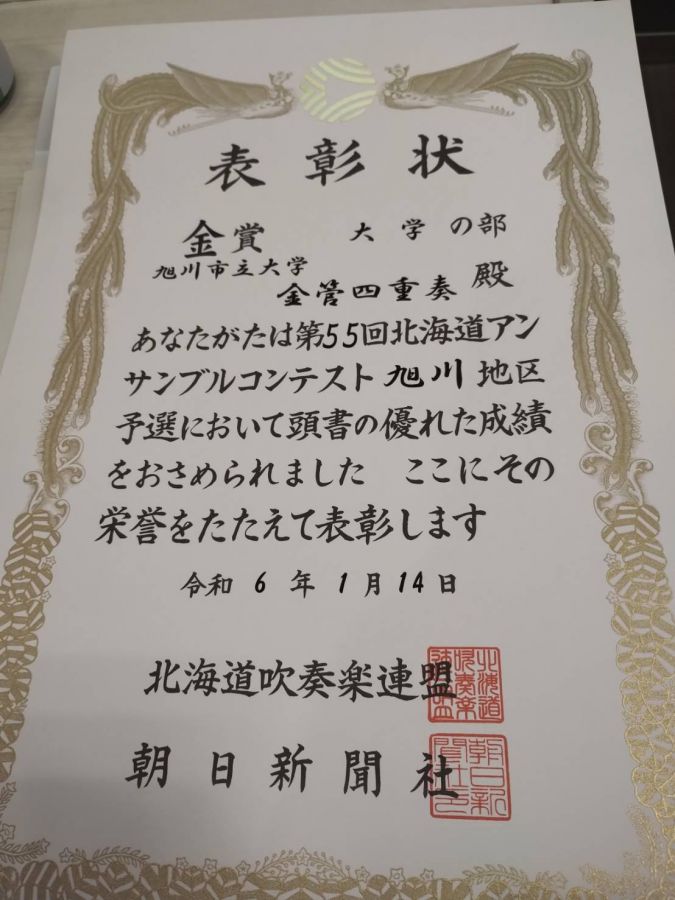 表彰状
金賞 大学の部
旭川市立大学
金管四重奏 殿
あなたがたは第55回北海道アン
サンブルコンテスト旭川地区
予選において頭書の優れた成績
をおさめられました ここにその
栄誉をたたえて表彰します
令和 6 年 1 月 14 日
北海道吹奏楽連盟
北海道吹奏楽連盟
朝日新聞社
朝日新聞社之印